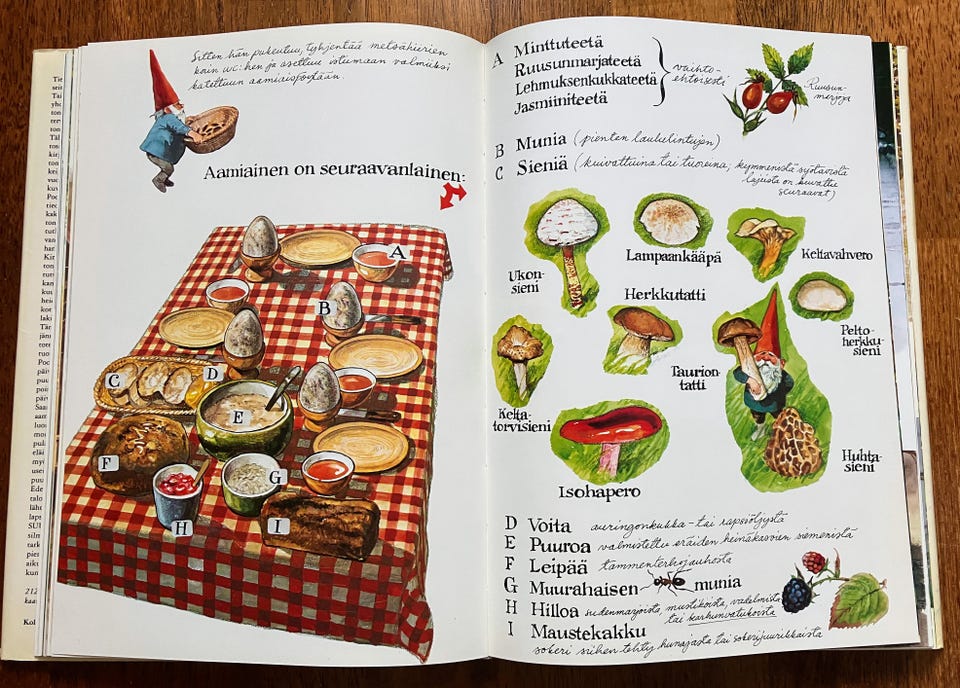 Sitten hän pukeutuu, tyhjentää metsähiirien
koin wc:hen ja asettuu istumaan valmiiksi
katettuun aamiaispöytään.
Aamiainen on seuraavanlainen:
A
B
C
D
E
F
G
H
I
A Minttuteetä
Ruusunmarjateetä
Lehmuksenkukkateetä
Jasmiiniteetä
vaihto-
ehtoisesti
Ruusun-
marjoja
B Munia (pienten laululintujen)
C Sieniä (kuivattuina tai tuoreina; kymmenistä syötävistä
lajeista on kuvattu
seuraavat)
Ukon-
sieni
Lampaankääpä
Keltavahvero
Herkkutatti
Pelto-
herkku-
sieni
Kelta-
torvisieni
Taurion-
tatti
Huhta-
sieni
Isohapero
D Voita auringonkukka- tai rapsöljystä
E Puuroa valmistettu eräiden heinäkasvien siemenistä
F Leipää tammenterhojauhosta
G Muurahaisen munia
H Hilloa sudenmarjoista, mustikoista, vadelmista
tai karhunvatukoista
I Maustekakku
sokeri siihen tehty hunajasta tai sokerijuurikkaista
212
Kol